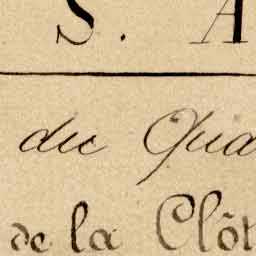 S. A
du Qua
de la Clôt